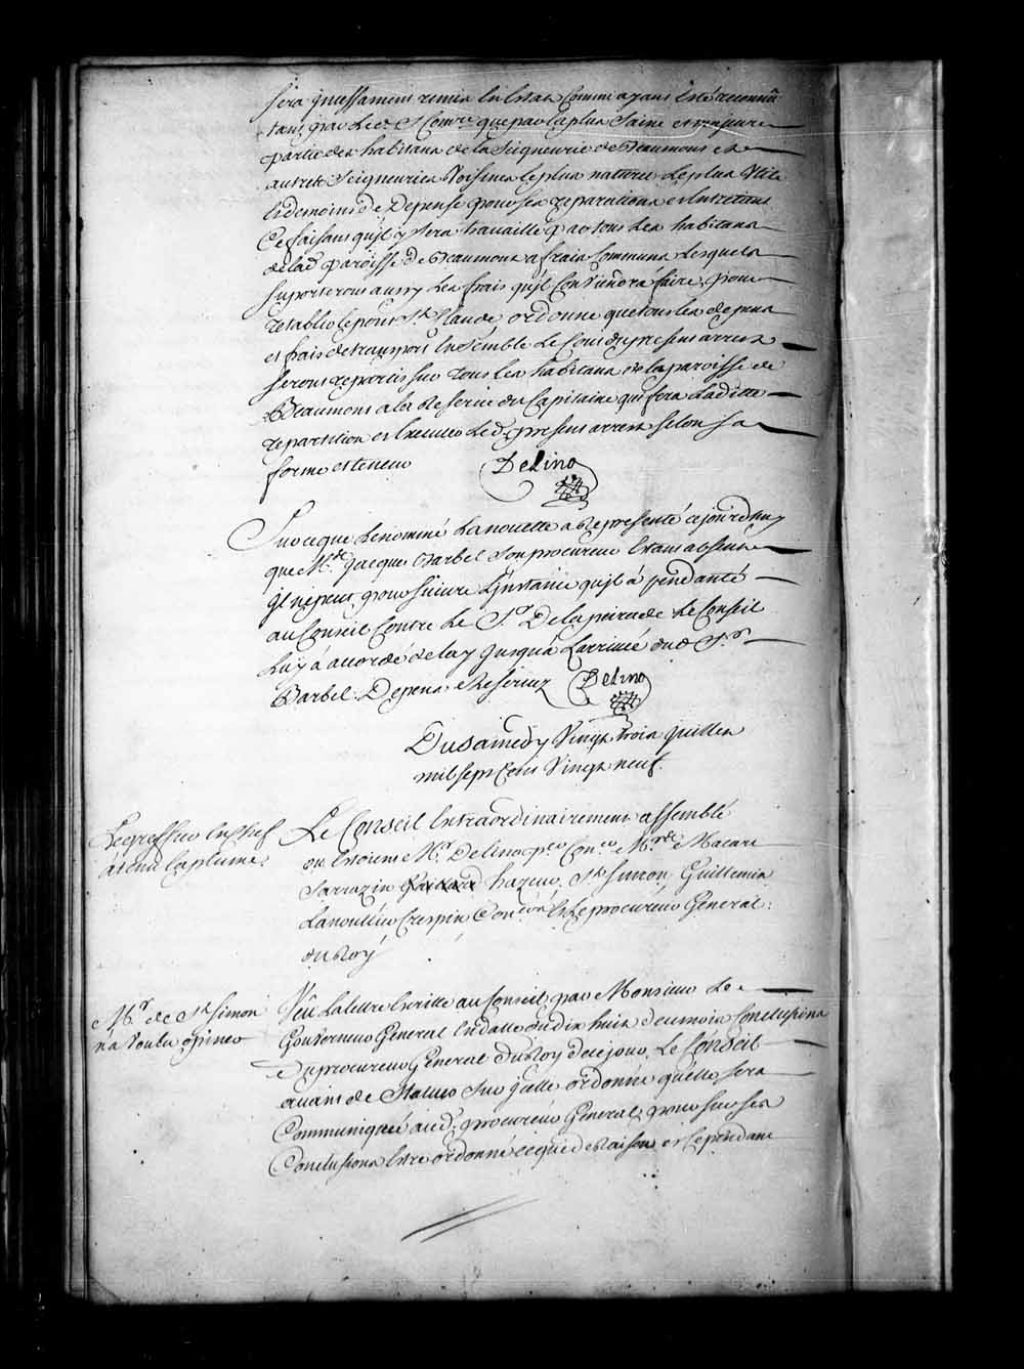 sera Incessament remis en Estat Comme ayant Esté reconnu
tant par Led. S.r Com.re que par la plus Saine et majeure
partie des habitans de la Seigneurie de Beaumont et
autres Seigneuries Voisines le plus naturel Le plus Utile
et de moins de Depense pour ses reparations et Entretiens
Ce faisant qu'jl y sera travaillé par tous Les habitans
de lad. paroisse de Beaumont a frais Communs Lesquels
suporteront aussy Les frais qu'jl Conviendra faire pour
retablir le pont S.t Claude ordonne que tous Les depens
et frais de transport Ensemble Le Cout du present arrest
seront repartis sur tous Les habitans de la paroisse de
Beaumont a la Reserve du Capitaine qui fera Laditte
repartition et Executer Led. present arrest selon sa
forme et teneur Delino
Sur ce que Le nommé Lanouette a Representé cejourd'huy
que M.e Jacques Barbel Son procureur Etant absent
Il ne peut poursuivre L'jnstance qu'jl a pendante
au Conseil Contre Le S.r De la peirade Le Conseil
Luy a accordé delay Jusqu'a Larrivée dud. S.r
Barbel. Depens Reservez Delino
Du Samedy Vingt trois Juillet
mil sept Cens Vingt neuf.
Le greffier En Chef
a tenu la plume
Le Conseil Extraordinairement assemblé
ou Etoient M.r Delino p.er Con.er M.rs Macart
Sarrazin Gaillard hazeur, S.t Simon, Guillemin
Lanoullier Crespin Con.ers Et Le procureur General
du Roy
M.r de S.t Simon
na Voulu opiner
Veu La lettre Ecritte au Conseil par Monsieur Le
Gouverneur General En datte du dix huit de ce mois Conclusions
Du procureur General du Roy de cejour, Le Conseil
avant de Statuer Sur Jcelle ordonne qu'elle sera
Communiquée aud. procureur General, pour sur ses
Conclusions Estre ordonné ce que de Raison et Cependant